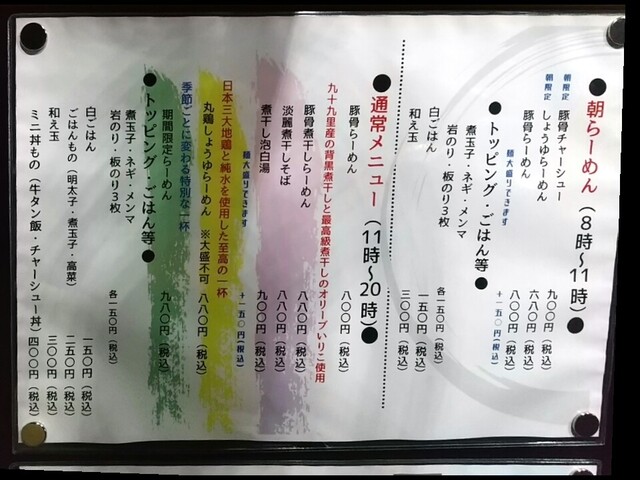 ●朝らーめん（8時～11時）●
朝限定 豚骨チャーシュー 九〇〇円（税込）
朝限定 しょうゆらーめん 六八〇円（税込）
豚骨らーめん 八〇〇円（税込）
麺大盛りできます ＋一五〇円（税込）
●トッピング・ごはん等●
煮玉子・ネギ・メンマ
岩のり・板のり3枚 各一五〇円（税込）
白ごはん 一五〇円（税込）
和え玉 三〇〇円（税込）
●通常メニュー（11時～20時）●
豚骨らーめん 八〇〇円（税込）
九十九里産の背黒煮干しと最高級煮干しのオリーブいりこ使用
豚骨煮干しらーめん 八八〇円（税込）
淡麗煮干しそば 八八〇円（税込）
煮干し泡白湯 九〇〇円（税込）
麺大盛りできます ＋一五〇円（税込）
日本三大地鶏と純水を使用した至高の一杯
丸鶏しょうゆらーめん ※大盛不可 八八〇円（税込）
季節ごとに変わる特別な一杯
期間限定らーめん 九八〇円（税込）
●トッピング・ごはん等●
煮玉子・ネギ・メンマ
岩のり・板のり3枚 各一五〇円（税込）
白ごはん 一五〇円（税込）
ごはんもの（明太子・煮玉子・高菜） 二五〇円（税込）
和え玉 三〇〇円（税込）
ミニ丼もの（牛タン飯・チャーシュー丼） 四〇〇円（税込）